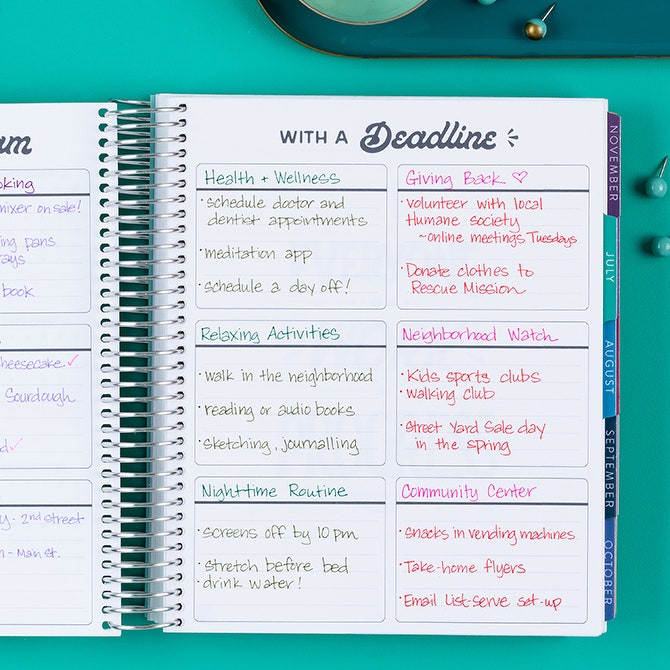 am
oking
mixer on sale!
ing pans
rays
book
cheesecake ✓
Sourdough
d ✓
y - 2nd street
n - Main St.
WITH A Deadline
Health + Wellness
· schedule doctor and
dentist appointments
· meditation app
· schedule a day off!
Giving Back ♡
· volunteer with local
Humane society
~online meetings Tuesdays
· Donate clothes to
Rescue Mission
Relaxing Activities
· walk in the neighborhood
· reading or audio books
· sketching, journalling
Neighborhood Watch
· Kids sports clubs
· walking club
· Street Yard Sale day
in the spring
Nighttime Routine
· Screens off by 10 pm
· stretch before bed
· drink water!
Community Center
· Snacks in vending machines
· Take-home flyers
· Email List-serve set-up
NOVEMBER
JULY
AUGUST
SEPTEMBER
OCTOBER